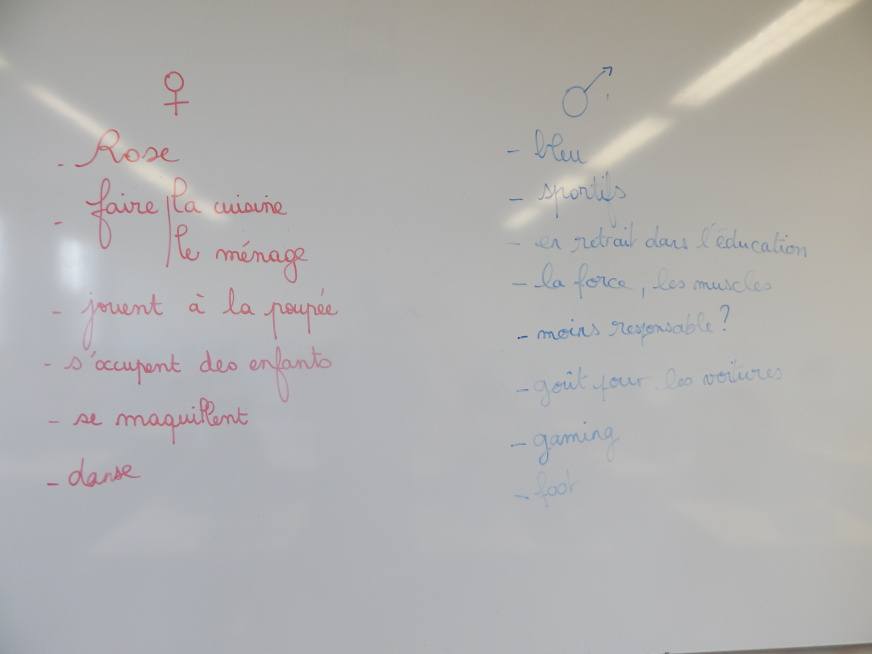 ♀
- Rose
- faire la cuisine
le ménage
- jouent à la poupée
- s'occupent des enfants
- se maquillent
- danse
♂
- bleu
- sportifs
- en retrait dans l'éducation
- la force, les muscles
- moins responsable ?
- goût pour les voitures
- gaming
- foot